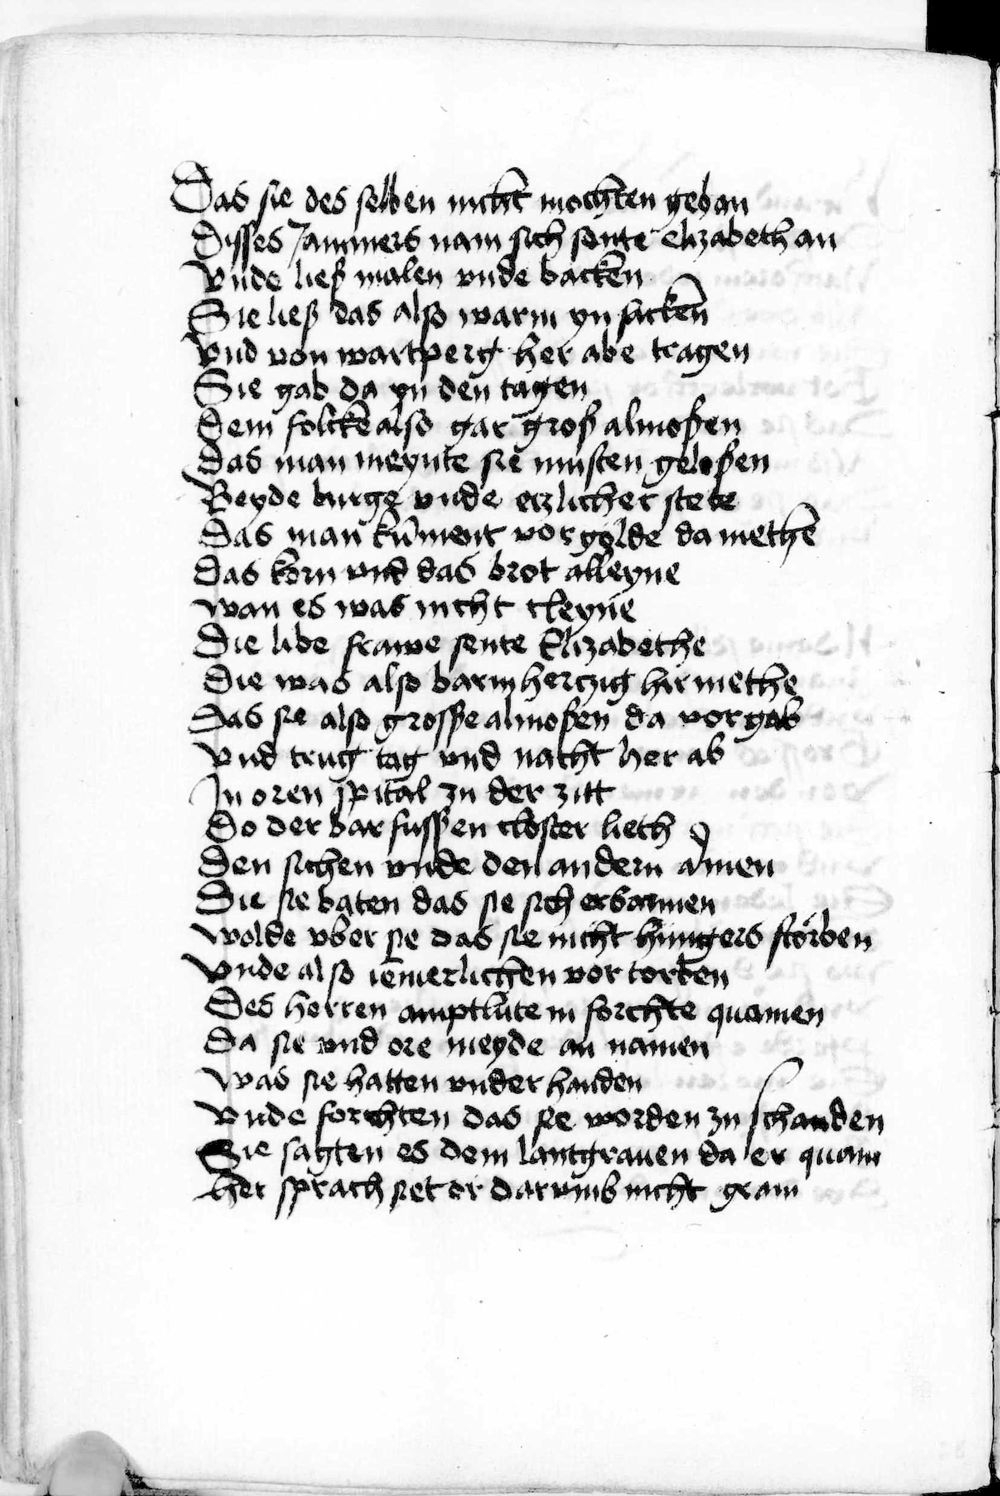 Das sie des selben nicht mochten gehan
Disses Jammers nam sich sente Elizabeth an
Vnde ließ malen vnde backen
Sie ließ das also warm yn sacken
Vnd von wartperg her abe tragen
Sie gab da yn den tagen
Dem folcke also gar groß almoßen
Das man meynte sie musten geloßen
Beyde burge vnde etzlicher stete
Das man kument vorgolde da methe
Das korn vnd das brot alleyne
wan es was nicht cleyne
Die libe frawe sente Elizabethe
Die was also barmhertzig hir methe
Das sie also grosße almoßen da vorgab
Vnd trug tag vnd nacht her ab
In oren spital zu der zitt
Do der barfussßen closter lieth
Den sichen vnde den andern armen
Die sie baten das sie sich erbarmen
wolde vber sie das sie nicht hungers störben
Vnde also iemerlichen vortorben
Des herren amptlute in forchte quamen
Da sie vnd ore meyde an namen
Was sie hatten vnder handen
Vnde forchten das sie worden zu schanden
Sie sagten es dem lantgrauen da er quam
Her sprach set or darvmb nicht gram